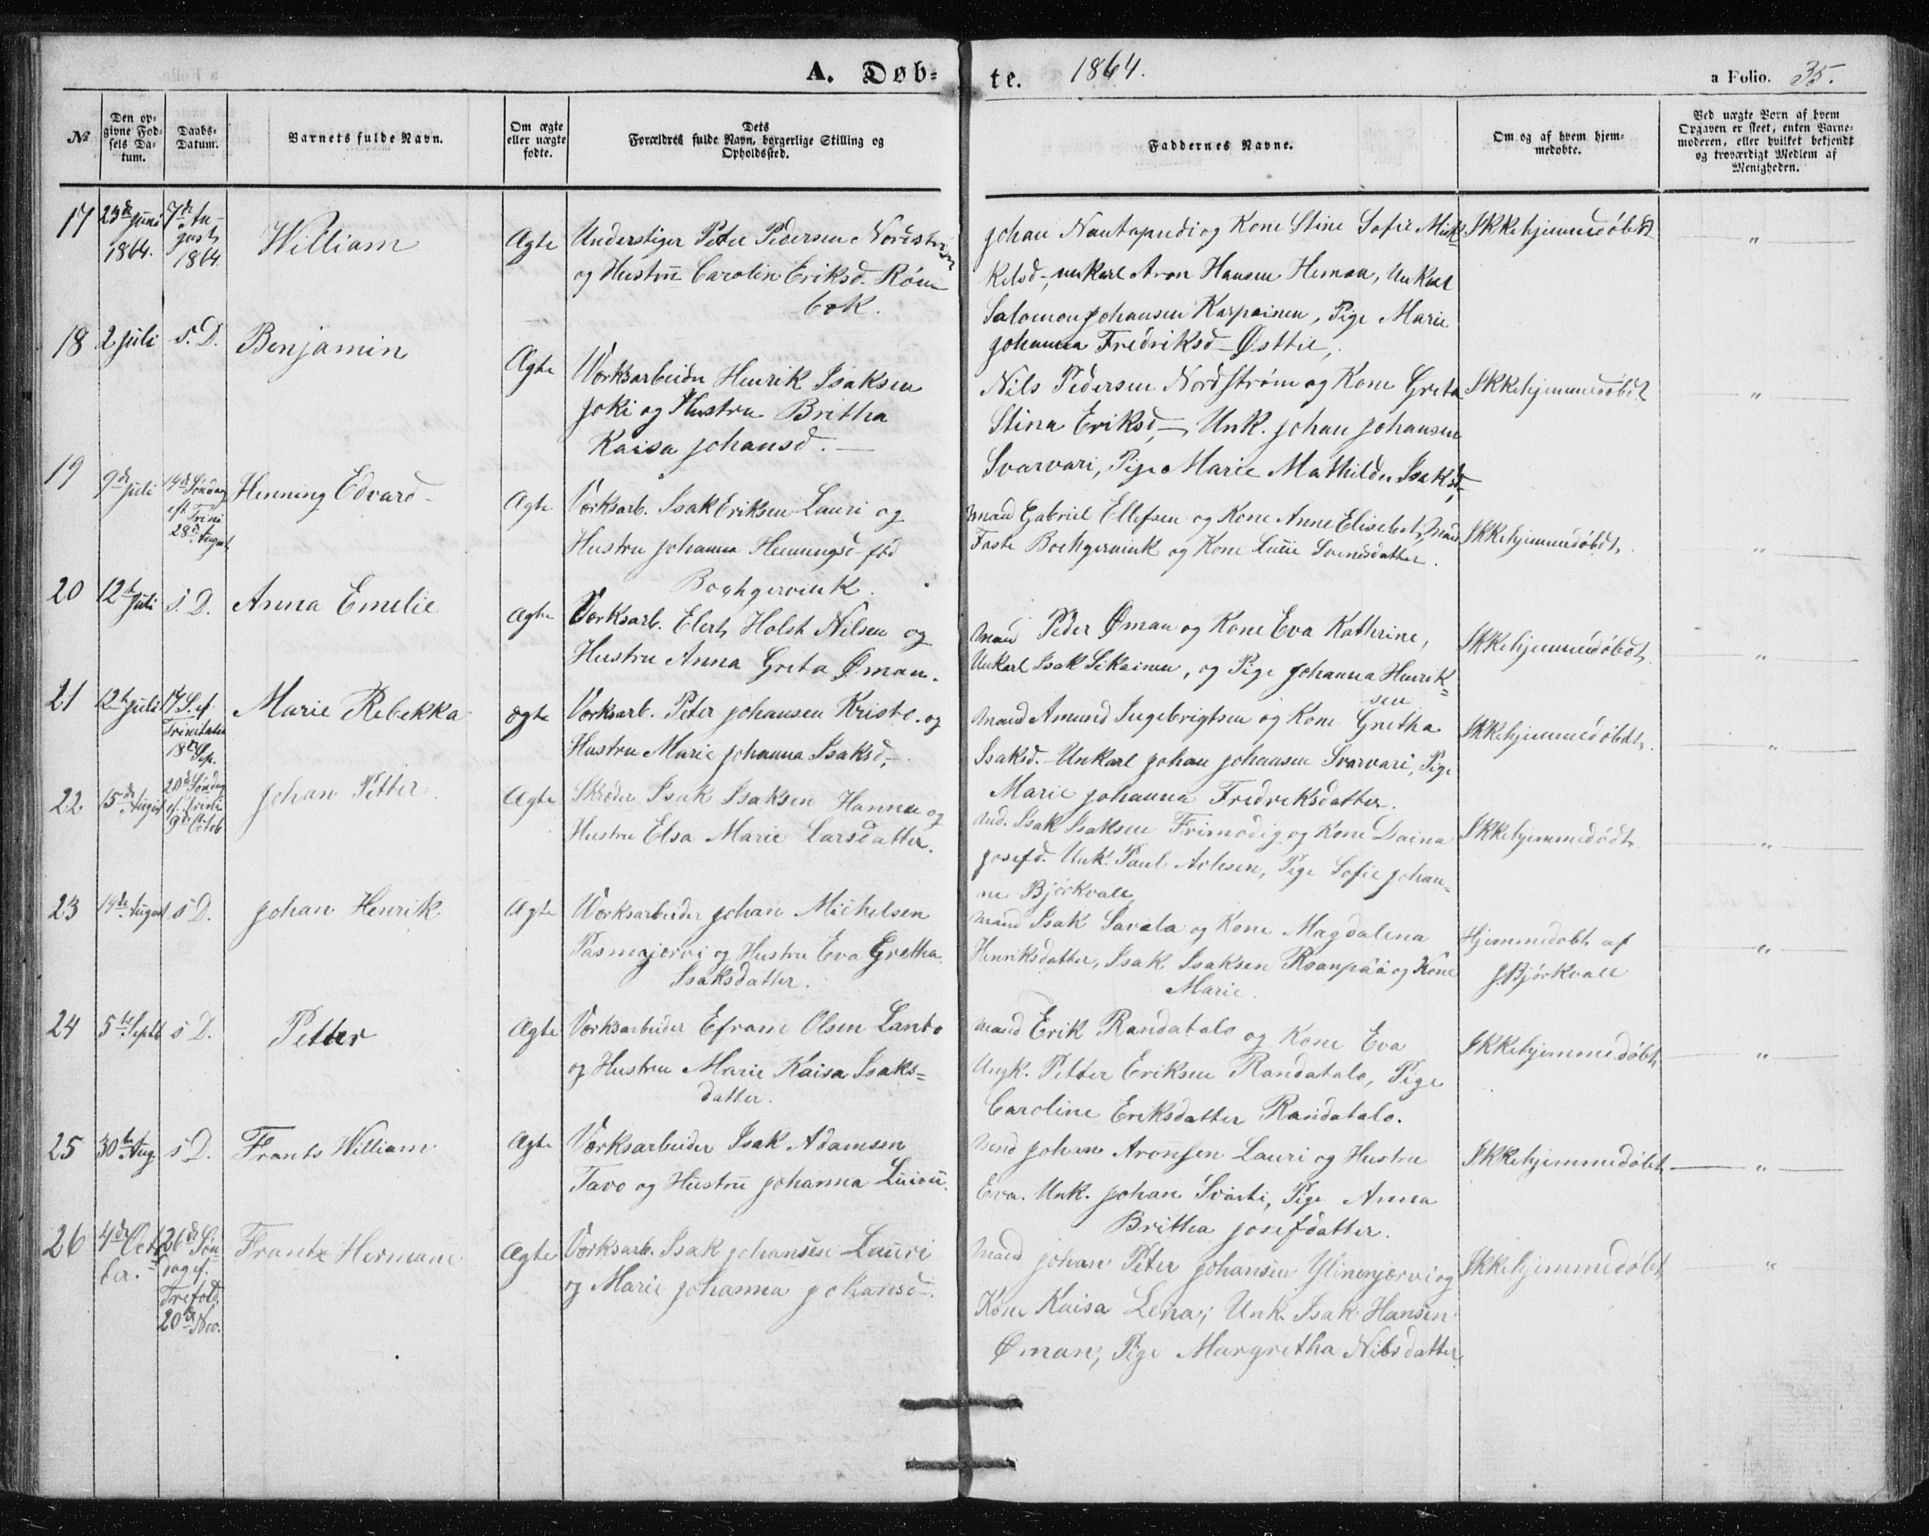 A. Døb-
te. 1864.
a Folio. 35.
№
Den op-
givne Fød-
sels Da-
tum.
Daabs-
Datum.
Barnets fulde Navn.
Om ægte
eller uægte
fødte.
Dets
Forældres fulde Navn, borgerlige Stilling og
Opholdssted.
Faddernes Navne.
Om og af hvem hjem-
medøbte.
Ved uægte Børn af hvem
Opgaven er skeet, enten Barne-
moderen, eller hvilket bekjendt
og troværdigt Medlem af
Menigheden.
17
23de Juni
1864.
7de Au-
gust
1864.
William
Ægte
Understiger Peter Pedersen Nordstrøm
og Hustru Carolin Eriksd. Røm-
bæk.
Johan Nautapudi og Kone Stine Sofie Mik-
kelsd, unkarl Aron Hansen Heman, Unkarl
Salomon Johansen Karpainen, Pige Marie
Johanna Fredriksd - Østtie,
Ikkehjemmedøbt
"
18
2 Juli
s. D.
Benjamin
Ægte
Værksarbeider Henrik Isaksen
Joki og Hustru Britha
Kaisa Johansd.
Nils Pedersen Nordstrøm og Kone Greta
Stina Eriksd, - Unk. Johan Johansen
Svarvari, Pige Marie Mathilde Isaksd,
Ikkehjemmedøbt
"
19
9de Juli
14de Søndag
eft Trini
28de August
Henning Edvard
Ægte
Værksarb. Isak Eriksen Lauri og
Hustru Johanna Henningsd. fød
Bochgrevink.
Mand Gabriel Ellefsen og Kone Anne Elisebet, Mand
Foste Bochgrevink og Kone Lucie Svendsdatter.
Ikkehjemmedøbt
"
20
12te Juli
s. D.
Anna Emelie
Ægte
Værksarb. Elert Holst Nilsen og
Hustru Anna Greta Øman.
Mand Peder Øman og Kone Eva Kathrine,
Unkarl Isak Sikainen, og Pige Johanna Henrik-
sen
Ikkehjemmedøbt
"
21
12te Juli
17 S. ef.
Trinitatis
18de Sep.
Marie Rebekka
Ægte
Værksarb. Peter Johansen Kristo og
Hustru Marie Johanna Isaksd,
Mand Amund Ingebrigtsen og Kone Gretha
Isaksd. - Unkarl Johan Johansen Svarvari, Pige
Marie Johanna Fredriksdatter.
Ikkehjemmedøbt
"
22
15de August
20de Søndag
ef. Trinit
9de Octob
Johan Petter
Ægte
Skreder Isak Isaksen Hannu og
Hustru Elsa Marie Larsdatter.
Md. Isak Isaksen Frimodig og Kone Daina
Josefd. Unk. Paul Achsen, Pige Sofie Johan-
ne Bjørkvall
Ikkehjemmedødt
"
23
14de August
s D.
Johan Henrik
Ægte
Værksarbeider Johan Michelsen
Pasmajervi og Hustru Eva Gretha
Isaksdatter.
Mand Isak Savala og Kone Magdalena
Henriksdatter, Isak Isaksen Roanpää og Kone
Marie.
Hjemmedøbt af
J. Bjørkvall
"
24
5te Septb
s D.
Petter
Ægte
Værksarbeider Efraim Olsen Lanto
og Hustru Marie Kaisa Isaks-
datter.
Mand Erik Randatalo og Kone Eva
Ungk. Petter Eriksen Randatalo, Pige
Caroline Eriksdatter Randatalo.
Ikkehjemmedøbt
"
25
30te Aug
s D.
Frants William
Ægte
Værksarbeider Isak Adamsen
Tavo og Hustru Johanna
Mand Johan Aronsen Lauri og Hustru
Eva. Unk. Johan Svarti, Pige Anna
Britha Josefdatter.
Ikkehjemmedøbt
"
26
4de Octo
ber.
26de Søn
dag ef.
Trefold.
20de Nov.
Frantz Hermann
Ægte
Værksarb. Isak Johansen Lauri
og Marie Johanna Johansd.
Mand Johan Peter Johansen Ylinenjærvi og
Kone Kaisa Lena; Unk. Isak Hansen
Øman; Pige Margretha Nilsdatter
Ikkehjemmedøbt
"